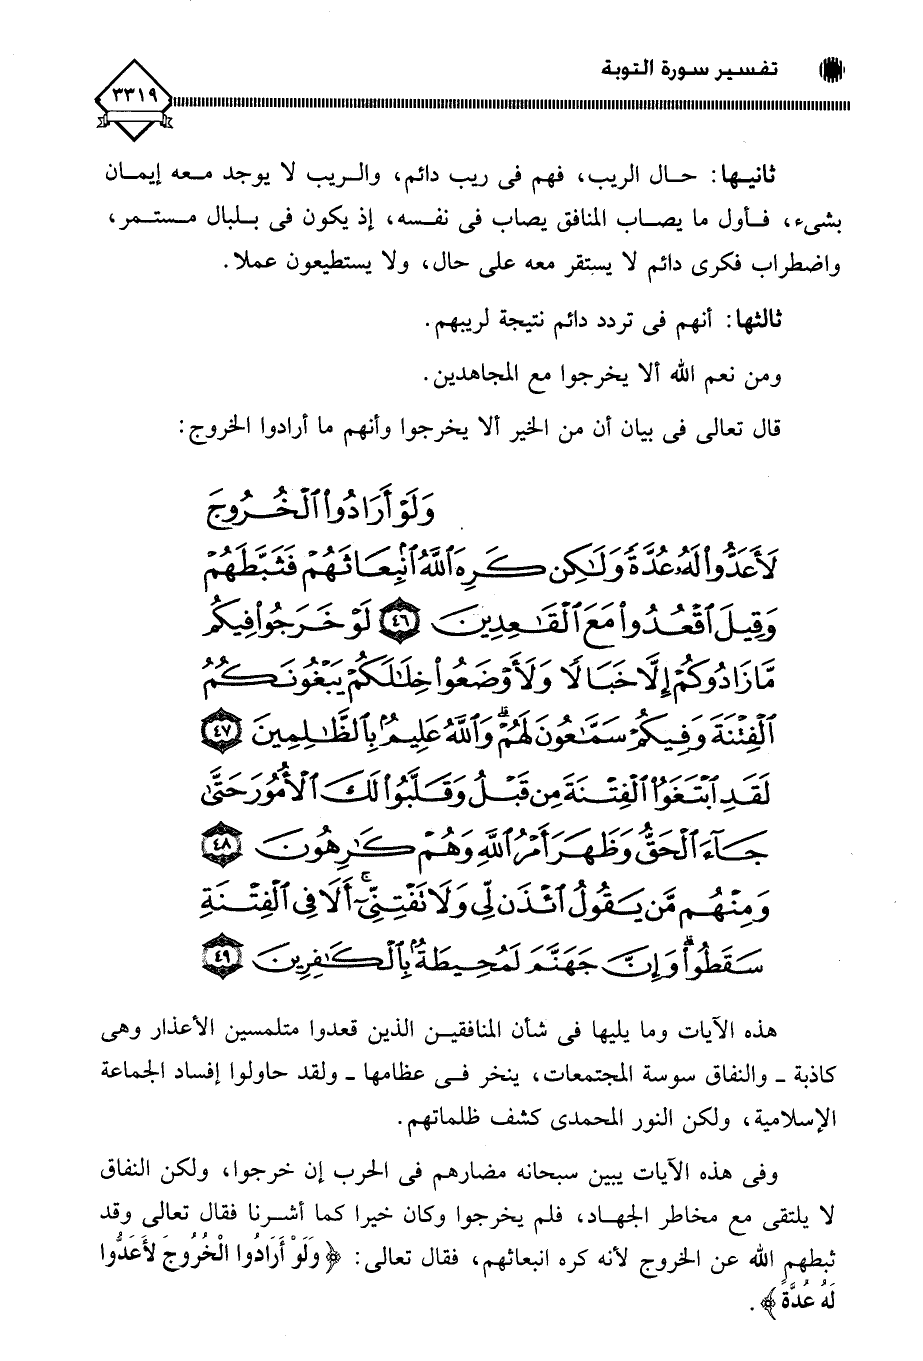 تفسير سورة التوبة
٣٣١٩
ثانيها: حال الريب، فهم فى ريب دائم، والريب لا يوجد معه إيمان
بشىء، فأول ما يصاب المنافق يصاب فى نفسه، إذ يكون فى بلبال مستمر،
واضطراب فكرى دائم لا يستقر معه على حال، ولا يستطيعون عملا.
ثالثها: أنهم فى تردد دائم نتيجة لريبهم.
ومن نعم الله ألا يخرجوا مع المجاهدين.
قال تعالى فى بيان أن من الخير ألا يخرجوا وأنهم ما أرادوا الخروج:
وَلَوْ أَرَادُوا۟ ٱلْخُرُوجَ
لَأَعَدُّوا۟ لَهُۥ عُدَّةً وَلَـٰكِن كَرِهَ ٱللَّهُ ٱنۢبِعَاثَهُمْ فَثَبَّطَهُمْ
وَقِيلَ ٱقْعُدُوا۟ مَعَ ٱلْقَـٰعِدِينَ ٤٦ لَوْ خَرَجُوا۟ فِيكُم
مَّا زَادُوكُمْ إِلَّا خَبَالًا وَلَأَوْضَعُوا۟ خِلَـٰلَكُمْ يَبْغُونَكُمُ
ٱلْفِتْنَةَ وَفِيكُمْ سَمَّـٰعُونَ لَهُمْ ۗ وَٱللَّهُ عَلِيمٌۢ بِٱلظَّـٰلِمِينَ ٤٧
لَقَدِ ٱبْتَغَوُا۟ ٱلْفِتْنَةَ مِن قَبْلُ وَقَلَّبُوا۟ لَكَ ٱلْأُمُورَ حَتَّىٰ
جَآءَ ٱلْحَقُّ وَظَهَرَ أَمْرُ ٱللَّهِ وَهُمْ كَـٰرِهُونَ ٤٨
وَمِنْهُم مَّن يَقُولُ ٱئْذَن لِّى وَلَا تَفْتِنِّىٓ ۚ أَلَا فِى ٱلْفِتْنَةِ
سَقَطُوا۟ ۗ وَإِنَّ جَهَنَّمَ لَمُحِيطَةٌۢ بِٱلْكَـٰفِرِينَ ٤٩
هذه الآيات وما يليها فى شأن المنافقين الذين قعدوا متلمسين الأعذار وهى
كاذبة ـ والنفاق سوسة المجتمعات، ينخر فى عظامها ـ ولقد حاولوا إفساد الجماعة
الإسلامية، ولكن النور المحمدى كشف ظلماتهم.
وفى هذه الآيات يبين سبحانه مضارهم فى الحرب إن خرجوا، ولكن النفاق
لا يلتقى مع مخاطر الجهاد، فلم يخرجوا وكان خيرا كما أشرنا فقال تعالى وقد
ثبطهم الله عن الخروج لأنه كره انبعاثهم، فقال تعالى: ﴿ وَلَوْ أَرَادُوا الْخُرُوجَ لأَعَدُّوا
لَهُ عُدَّةً ﴾.